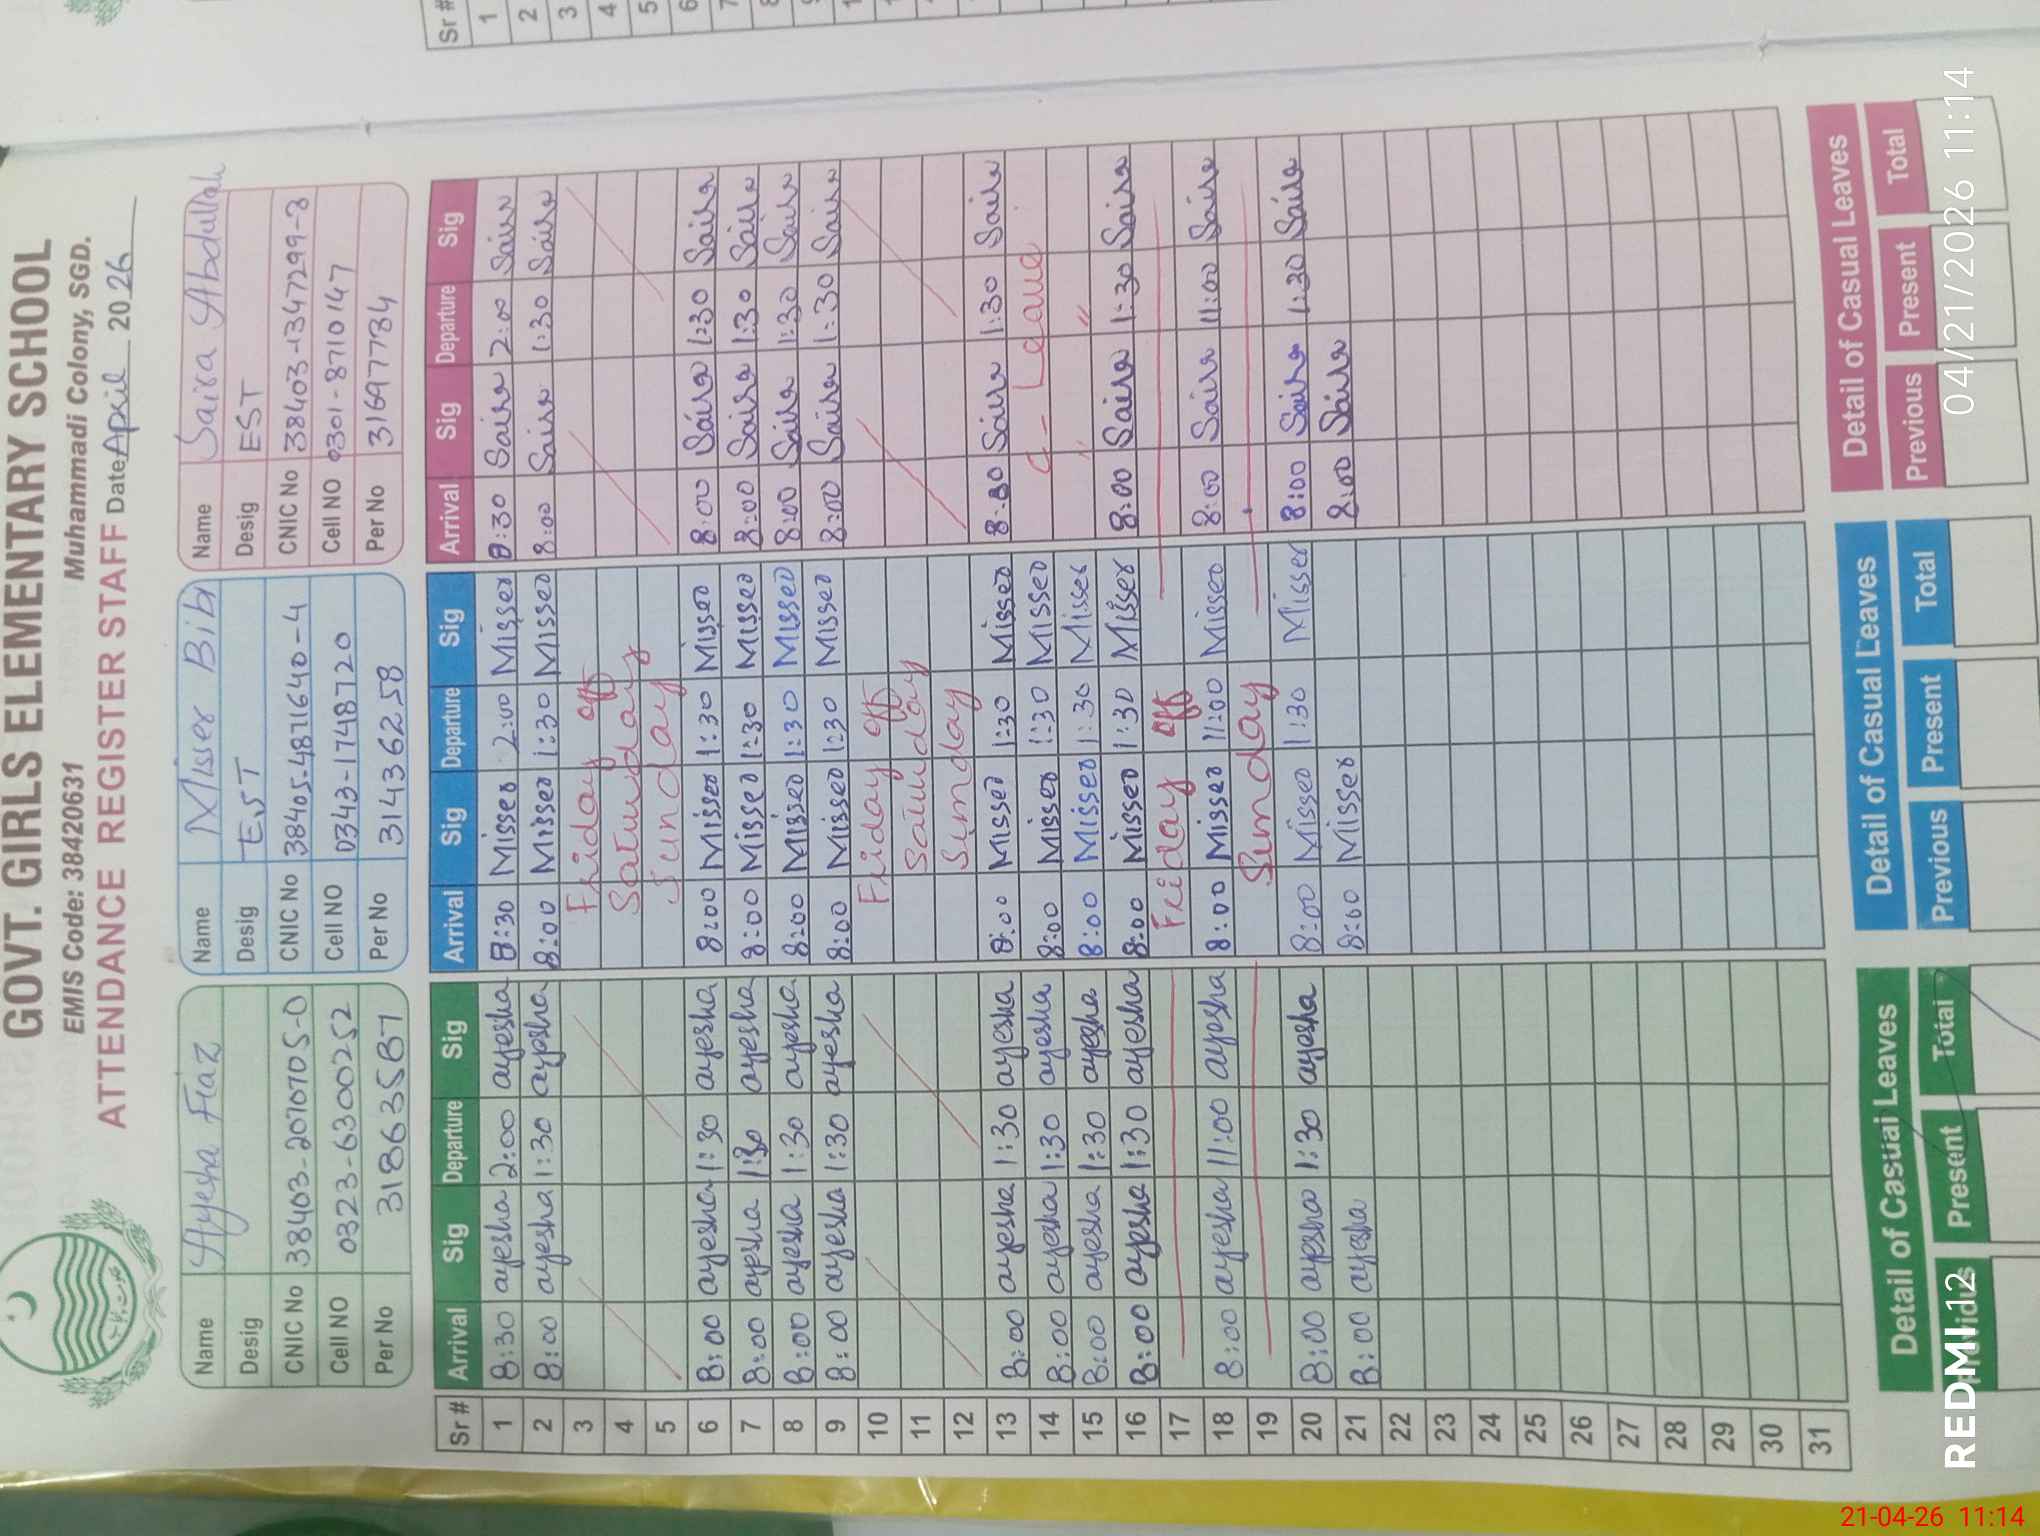 GOVT. GIRLS ELEMENTARY SCHOOL
EMIS Code: 38420631 Muhammadi Colony, SGD.
ATTENDANCE REGISTER STAFF Date April 2026
Name Ayesha Fiaz
Desig
CNIC No 38403-2070705-0
Cell NO 0323-6300252
Per No 31863587
Name Misser Bibi
Desig EST
CNIC No 38405-4871640-4
Cell NO 0343-1748720
Per No 31436258
Name Saira Abdullah
Desig EST
CNIC No 38403-1347299-8
Cell NO 0301-8710147
Per No 31697784
Sr # Arrival Sig Departure Sig Arrival Sig Departure Sig Arrival Sig Departure Sig
1 8:30 ayesha 2:00 ayesha 8:30 Misser 2:00 Misser 8:30 Saira 2:00 Saira
2 8:00 ayesha 1:30 ayesha 8:00 Misser 1:30 Misser 8:00 Saira 1:30 Saira
3 Friday off
4 Saturday
5 Sunday
6 8:00 ayesha 1:30 ayesha 8:00 Misser 1:30 Misser 8:00 Saira 1:30 Saira
7 8:00 ayesha 1:30 ayesha 8:00 Misser 1:30 Misser 8:00 Saira 1:30 Saira
8 8:00 ayesha 1:30 ayesha 8:00 Misser 1:30 Misser 8:00 Saira 1:30 Saira
9 8:00 ayesha 1:30 ayesha 8:00 Misser 1:30 Misser 8:00 Saira 1:30 Saira
10 Friday off
11 Saturday
12 Sunday
13 8:00 ayesha 1:30 ayesha 8:00 Misser 1:30 Misser 8:30 Saira 1:30 Saira
14 8:00 ayesha 1:30 ayesha 8:00 Misser 1:30 Misser C - Leave
15 8:00 ayesha 1:30 ayesha 8:00 Misser 1:30 Misser " "
16 8:00 ayesha 1:30 ayesha 8:00 Misser 1:30 Misser 8:00 Saira 1:30 Saira
17 Friday off
18 8:00 ayesha 11:00 ayesha 8:00 Misser 11:00 Misser 8:00 Saira 11:00 Saira
19 Sunday
20 8:00 ayesha 1:30 ayesha 8:00 Misser 1:30 Misser 8:00 Saira 1:30 Saira
21 8:00 ayesha 8:00 Misser 8:00 Saira
22
23
24
25
26
27
28
29
30
31
Detail of Casual Leaves Detail of Casual Leaves Detail of Casual Leaves
Previous Present Total Previous Present Total Previous Present Total
Sr #
1
2
3
4
5
6
7
REDMI 12 04/21/2026 11:14
21-04-26 11:14